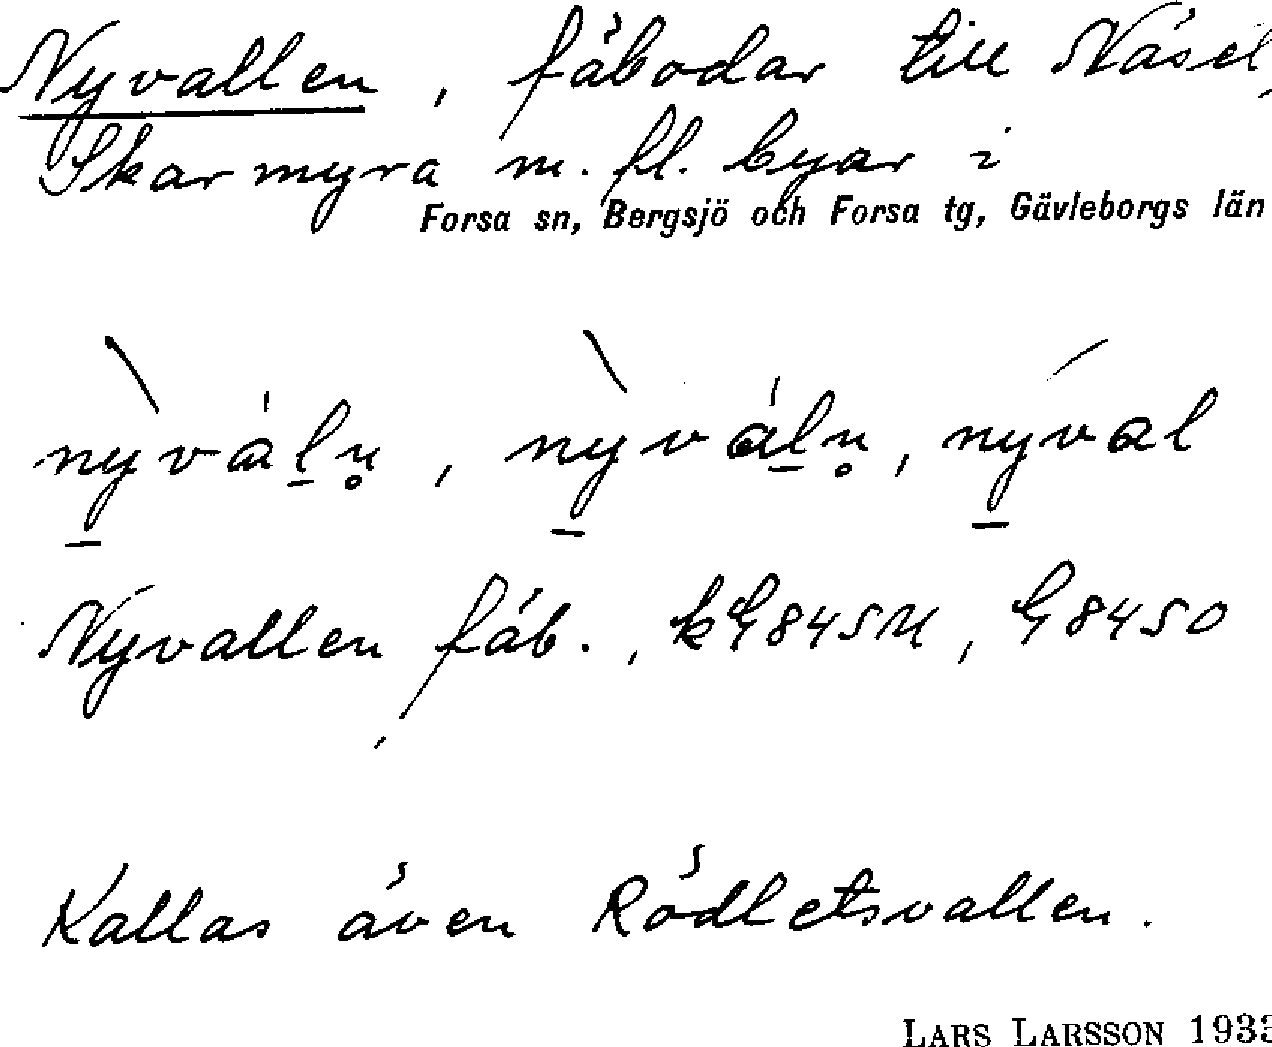 Nyvallen, fäbodar till Näsel,
Skarmyra m. fl. byar i
Forsa sn, Bergsjö och Forsa tg, Gävleborgs län
nyvaln, nyvaln, nyval
Nyvallen fäb.,
Kallas även Rödletsvallen.
LARS LARSSON 1933